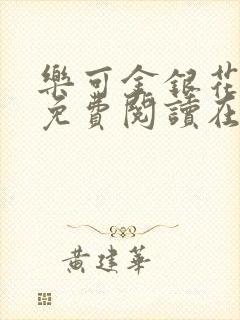 樂可金銀花
免費閱讀在
黃建華